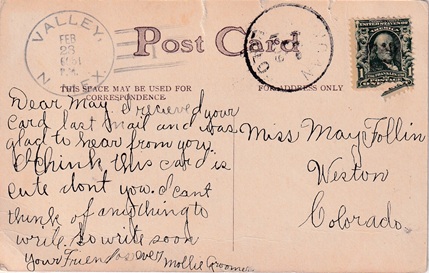 VALLEY,
FEB
23
N. MEX.
Post Card
THIS SPACE MAY BE USED FOR
CORRESPONDENCE.
FOR ADDRESS ONLY
1
Dear May. I recieved your
Card last mail and was
glad to hear from you.
I think this card is
cute dont you. I cant
think of anything to
write. So write soon
Your Friend as ever Mollie
Miss May Follin
Weston
Colorado.